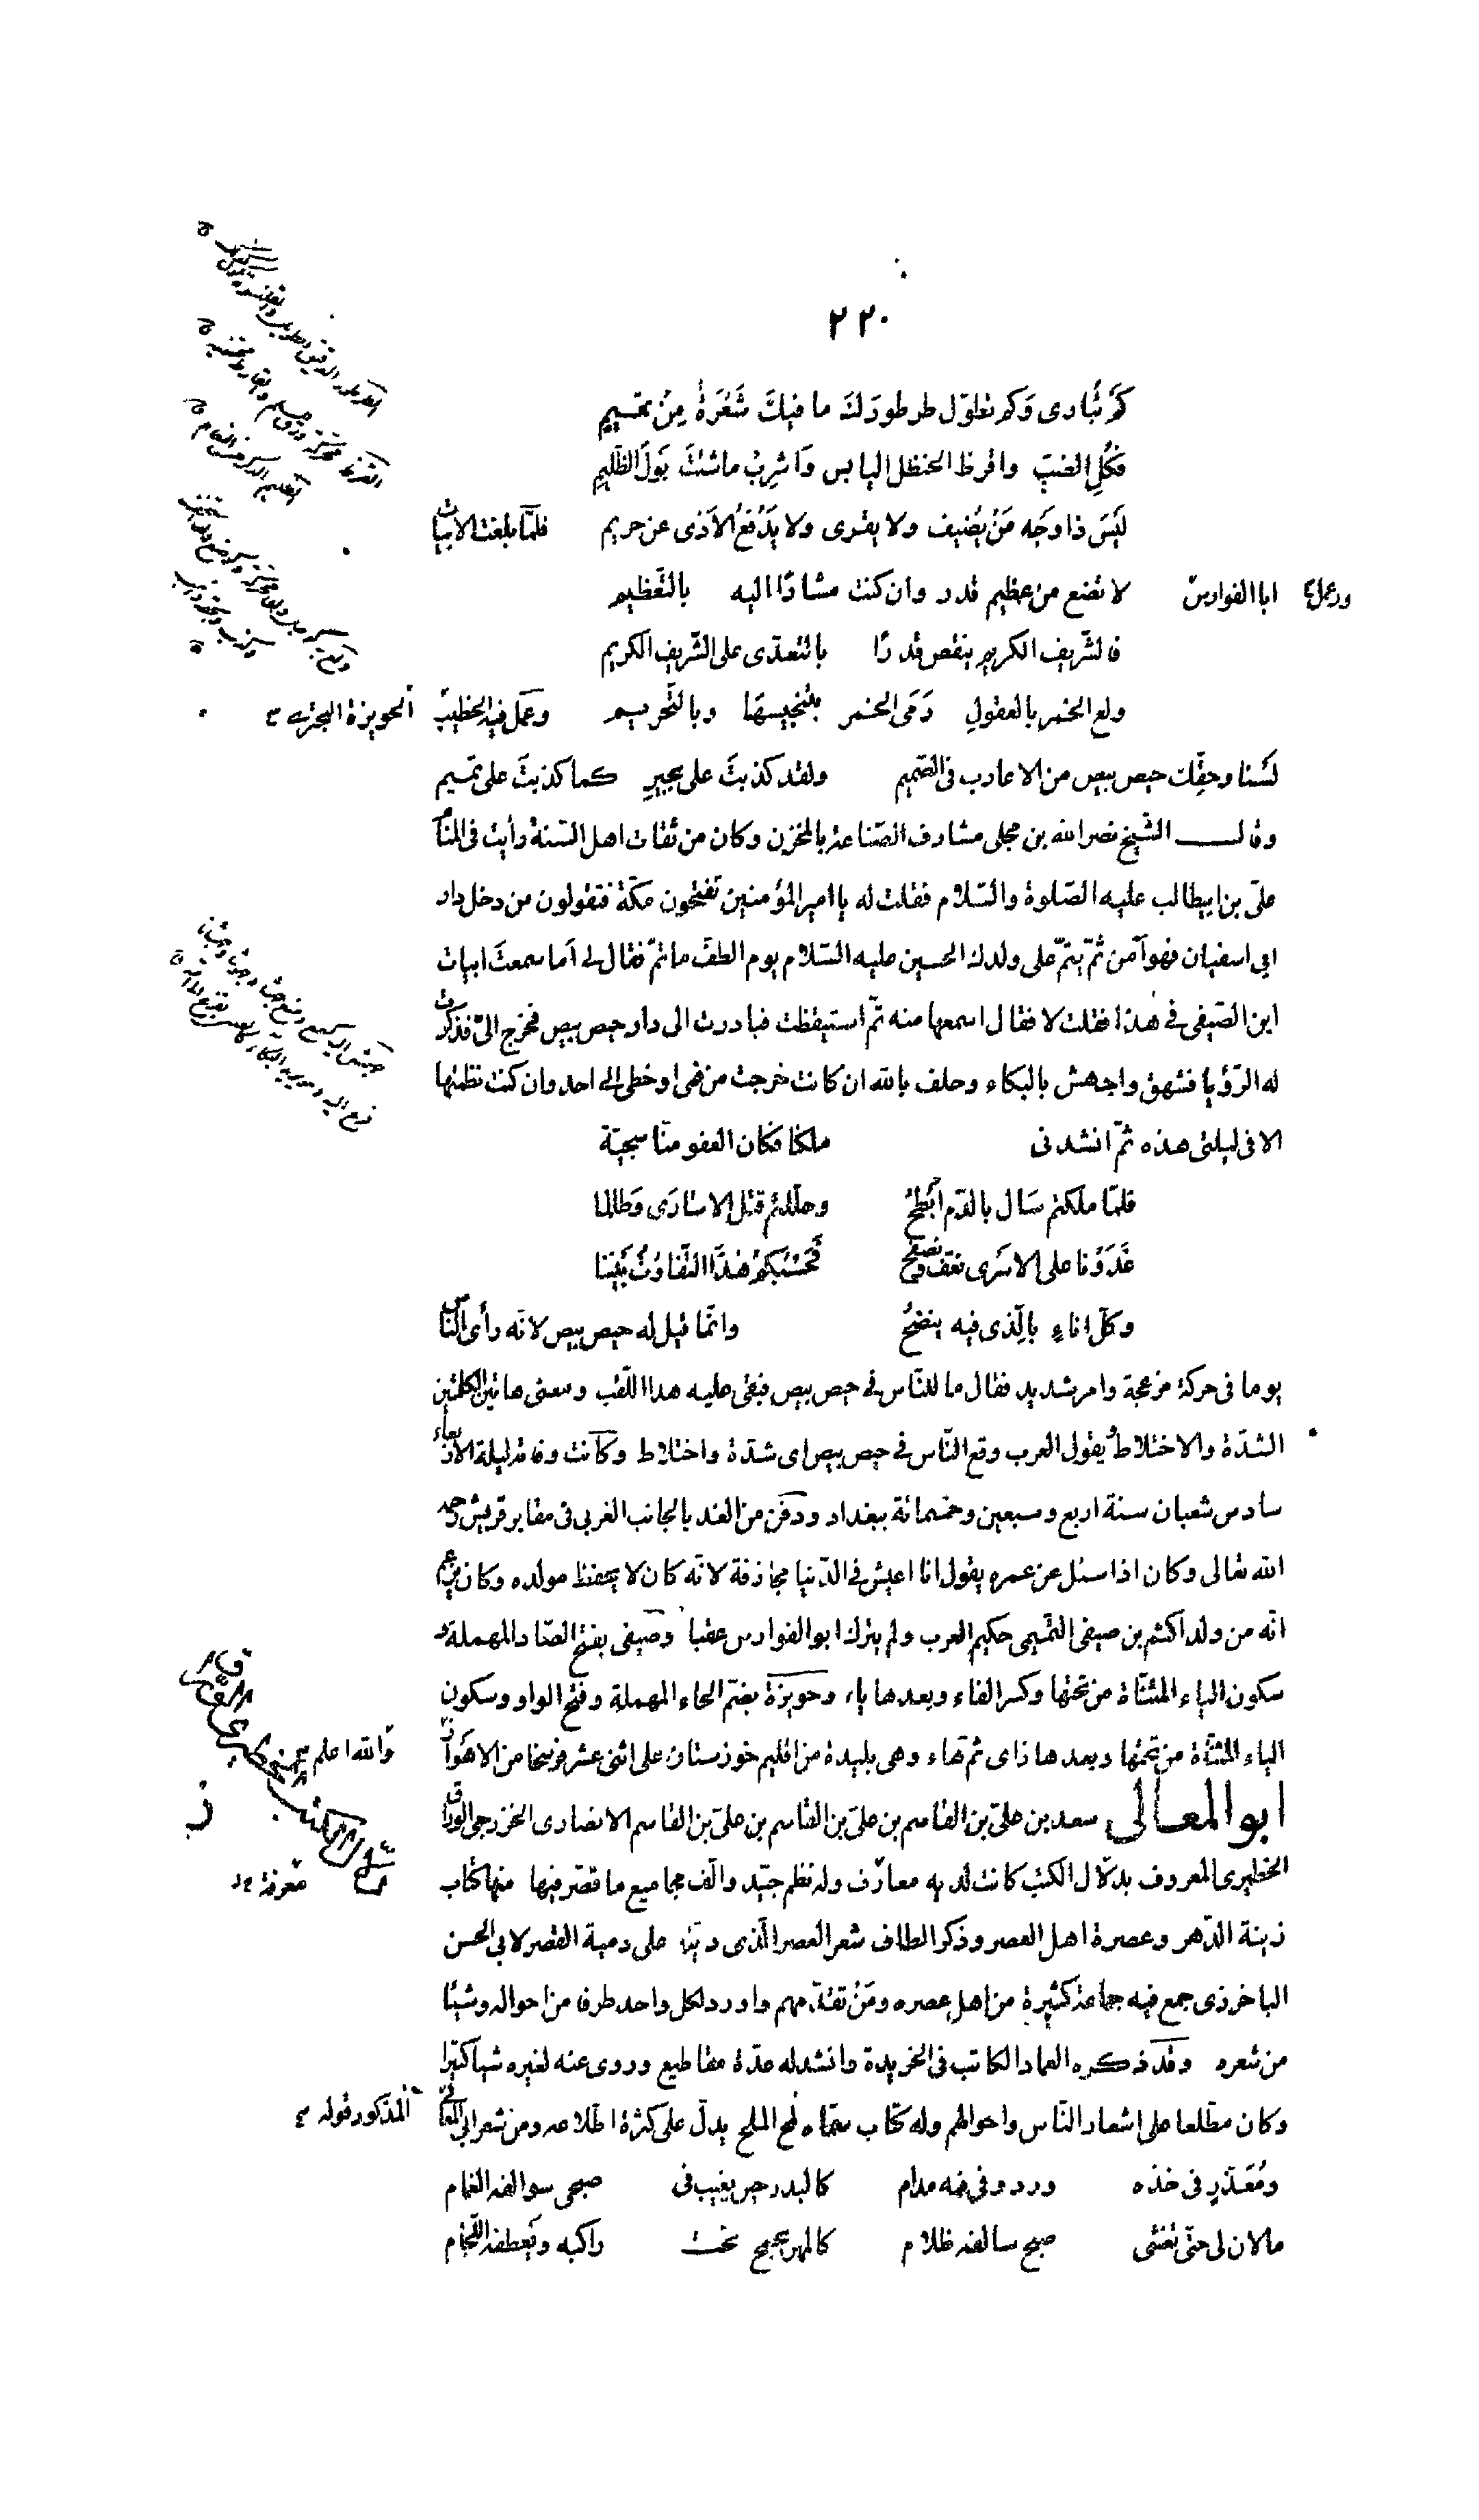 ٢٢٠
كَمْ تُبَادى وَكم تطوّل طرطورَكَ ما فيكَ شَعْرَةٌ مِنْ تميم
فكُلِ الضبّ واقرظ الحنظل اليابس وَاشربْ ماشئتَ بَولَ الظّليم
لَيْسَ ذا وَجه مَنْ يُضيف ولا يقرى ولا يَدْفعُ الأذى عن حريم فلمّا بلغت الابيات
ابا الفوارس لا تضع من عظيم قدر وان كنت مشارًا اليه بالتّعظيم
فالشّريف الكريم ينقص قدرًا بالتعدّى على الشّريف الكريم
ولع الخمر بالعقولِ رَمَى الخمر بتنجيسهَا وبالتّحريم وعمل فيه الخطيب الحويزة البحترى
لسنا وحقّك حيص بيص من الاعارب فى الصّميم ولقد كذبتَ على بحيرٍ كما كذبتَ على تميم
وقال الشّيخ نصر الله بن مجلى مشارف الصّناعة بالمخزن وكان من ثقات اهل السّنة رأيت فى المنام
علىّ بن ابيطالب عليه الصّلوة والسّلام فقلت له يا امير المؤمنين تفتحون مكّة فتقولون من دخل دار
ابى اسفيان فهو آمن ثمّ يتمّ على ولدك الحسين عليه السّلام يوم الطفّ ما تمّ فقال لى أما سمعتَ ابيات
ابن الصّيفى فى هذا فقلت لا فقال اسمعها منه ثمّ استيقظت فبادرت الى دار حيص بيص فخرج الىّ فذكرت
له الرّؤيا فشهق واجهش بالبكاء وحلف بالله ان كانت خرجت من فمى او خطى الى احد وان كنت نظمتها
الا فى ليلتى هذه ثمّ انشدنى ملكنا فكان العفو منّا سجيّة
فلمّا ملكتم سَال بالدّم أبْطَحُ وحلّلتم قتل الاسَارَى وَطالما
غَدَوْنا على الاسْرى نعفّ ونصفح فَحَسْبُكمُ هٰذَا التّفاوُتُ بَيْنَنا
وكلّ اناءٍ بالّذى فيه ينضحُ وانّما قيل له حيص بيص لانّه رأى النّاس
يوما فى حركة مزعجة وامر شديد فقال ما للنّاس فى حيص بيص فبقى عليه هذا اللّقب ومعنى هاتين الكلمتين
الشدّة والاختلاط ويقول العرب وقع النّاس فى حيص بيص اى شدّة واختلاط وكانت وفاته ليلة الاربعاء
سادس شعبان سنة اربع وسبعين وخمسمائة ببغداد ودفن من الغد بالجانب الغربى فى مقابر قريش رحمه
الله تعالى وكان اذا سئل عن عمره يقول انا اعيش فى الدّنيا مجازفة لانّه كان لا يحفظ مولده وكان يزعم
انّه من ولد اكثم بن صيفى التّميمى حكيم العرب ولم يترك ابو الفوارس عقبا وصيفى بفتح الصّاد المهملة و
سكون الياء المثنّاة من تحتها وكسر الفاء وبعدها ياء وحويزة بضمّ الحاء المهملة وفتح الواو وسكون
الياء المثنّاة من تحتها وبعدها زاى ثمّ هاء وهى بليدة من اقليم خوزستان على اثنى عشر فرسخا من الاهواز والله اعلم
ابو المعالى سعد بن علىّ بن القاسم بن علىّ بن القاسم بن علىّ بن القاسم الانصارى الخزرجى الورّاق
الخطيرى المعروف بدلّال الكتب كانت لديه معارف وله نظم جيّد والّف مجاميع ما قصّر فيها منها كتاب
زينة الدّهر وعصرة اهل العصر وذكر الطاف شعر العصر الّذى ذيّله على دمية القصر لابى الحسن
الباخرزى جمع فيه جماعة كثيرة من اهل عصره ومَنْ تقدّمهم واورد لكل واحد طرفا من احواله وشيئا
من شعره وقد ذكره العماد الكاتب فى الخريدة وانشد له عدّة مقاطيع وروى عنه لغيره شيئا كثيرا
وكان مطّلعا على اشعار النّاس واحوالهم وله كتاب سمّاه لمح الملح يدلّ على كثرة اطّلاعه ومن شعر ابى المعالى المذكور قوله
ومُعَذّرٍ فى خدّه ورد وفى فمه مدام كالبدر حين يغيب فى صبحى سوالفه الغمام
مالان لى حتّى تغشّى صبح سالفه ظلام كالمهر يجمح تحت راكبه ويعطفه اللّجام